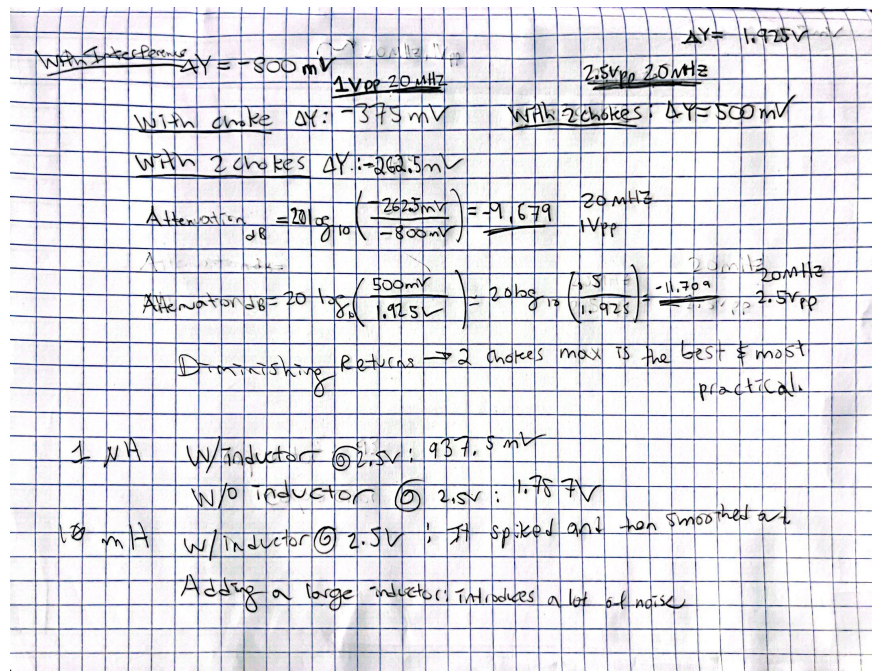 ΔY = 1.925V
With Interference ΔY = -800 mV
1Vpp 20 MHz
2.5Vpp 20MHz
With choke ΔY: -375 mV
With 2 chokes: ΔY= 500 mV
With 2 chokes ΔY: -262.5mV
Attenuation dB = 20log10 (-262.5mV / -800mV) = -9.679 20 MHz
1Vpp
Attenuation dB = 20 log10 (500mV / 1.925V) = 20log10 (.5 / 1.925) = -11.709 20MHz
2.5Vpp
Diminishing Returns → 2 chokes max is the best & most
practical.
1 μH W/inductor @ 2.5V: 937.5 mV
W/o inductor @ 2.5V: 1.787V
mH W/inductor @ 2.5V: It spiked and then smoothed out
Adding a large inductor: introduces a lot of noise